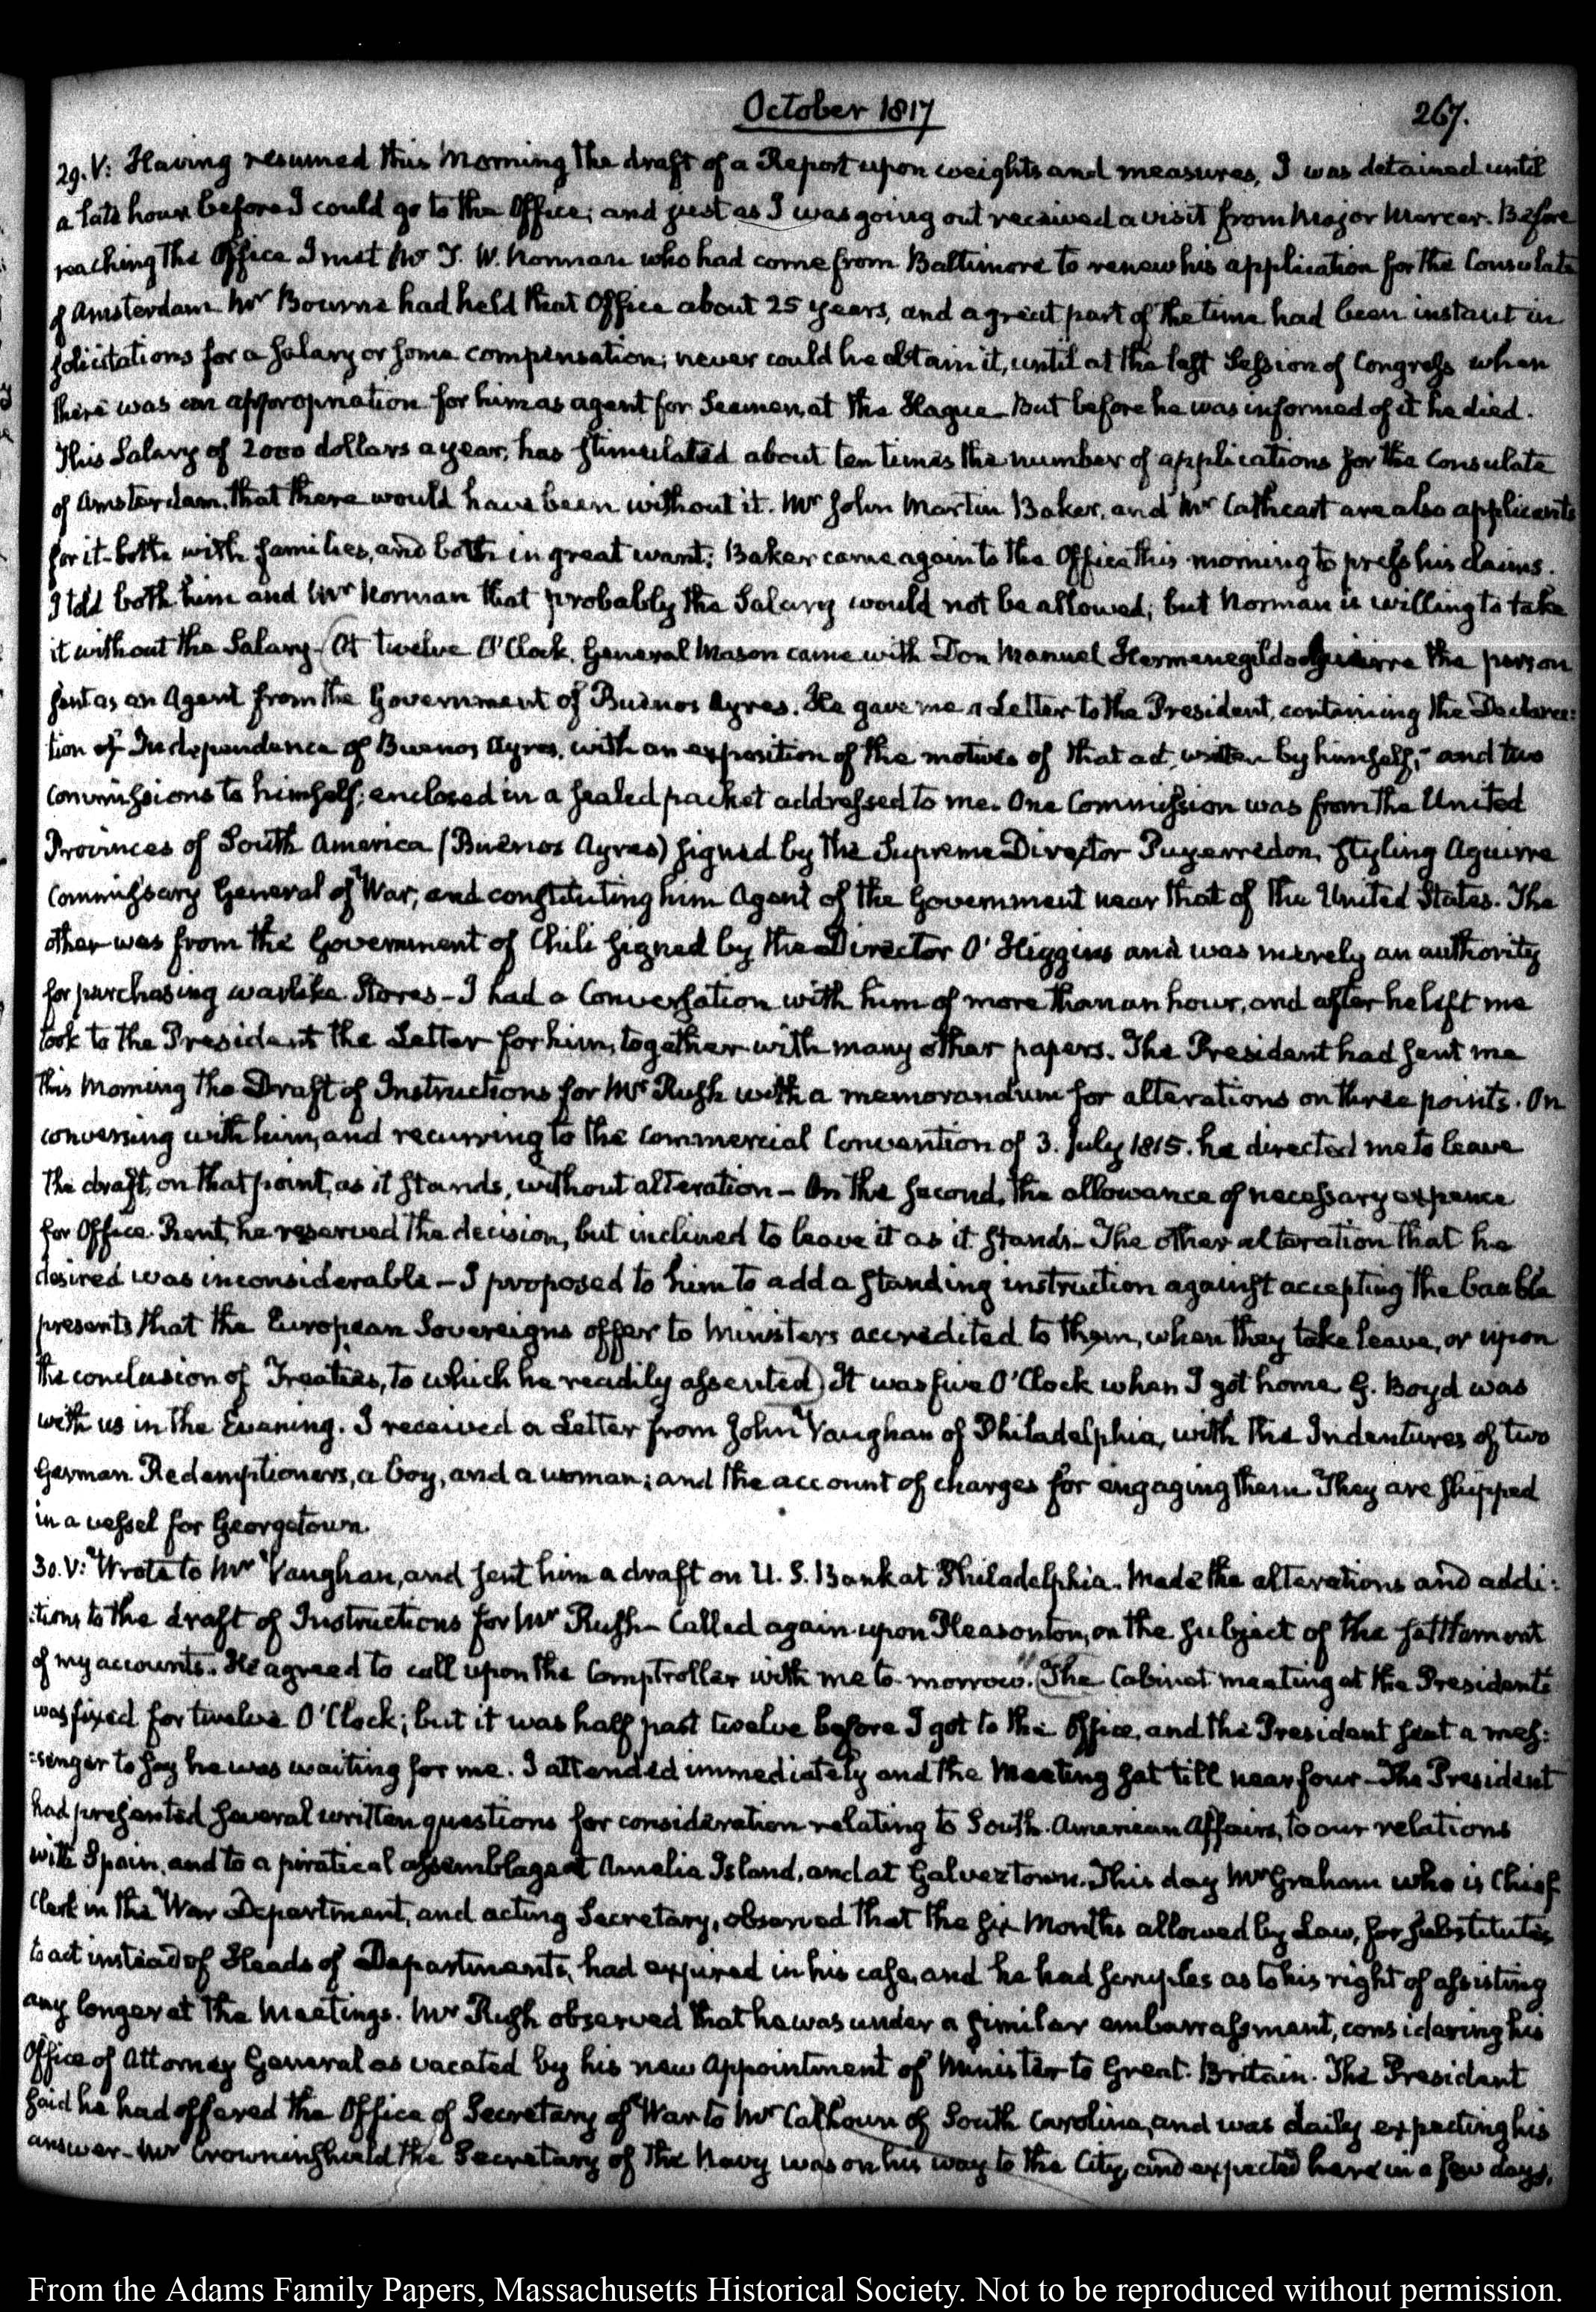 October 1817
267.
29. V: Having resumed this Morning the draft of a Report upon weights and measures, I was detained until
a late hour before I could go to the Office; and just as I was going out received a visit from Major Mercer. Before
reaching the Office I met Mr J. W. Norman who had come from Baltimore to renew his application for the Consulate
of Amsterdam. Mr Bourne had held that Office about 25 years, and a great part of the time had been instant in
solicitations for a salary or some compensation; never could he obtain it, until at the last Session of Congress when
there was an appropriation for him as agent for Seamen, at the Hague— But before he was informed of it he died.
This Salary of 2000 dollars a year, has stimulated about ten times the number of applications for the Consulate
of Amsterdam, that there would have been without it. Mr John Martin Baker, and Mr Cathcart are also applicants
for it— both with families, and both in great want: Baker came again to the Office this morning to press his claims.
I told both him and Mr Norman that probably the Salary would not be allowed; but Norman is willing to take
it without the Salary— (At twelve O'Clock, General Mason came with Don Manuel Hermenegildo Aguirre the person
sent as an Agent from the Government of Buenos Ayres. He gave me a Letter to the President, containing the Declara:
tion of Independence of Buenos Ayres, with an exposition of the motives of that act, written by himself;— and two
Commissions to himself; enclosed in a sealed packet addressed to me. One Commission was from the United
Provinces of South America (Buenos Ayres) signed by the Supreme Director Puyerredon, styling Aguirre
Commissary General of War, and constituting him Agent of the Government near that of the United States. The
other was from the Government of Chili signed by the Director O'Higgins and was merely an authority
for purchasing warlike Stores— I had a Conversation with him of more than an hour, and after he left me
took to the President the Letter for him, together with many other papers. The President had sent me
this Morning the Draft of Instructions for Mr Rush with a memorandum for alterations on three points. On
conversing with him, and recurring to the Commercial Convention of 3. July 1815. he directed me to leave
the draft, on that point, as it stands, without alteration— On the second, the allowance of necessary expence
for Office-Rent, he reserved the decision, but inclined to leave it as it stands— The other alteration that he
desired was inconsiderable— I proposed to him to add a standing instruction against accepting the bauble
presents that the European Sovereigns offer to Ministers accredited to them, when they take leave, or upon
the conclusion of Treaties, to which he readily assented) It was five O'Clock when I got home. G. Boyd was
with us in the Evening. I received a Letter from John Vaughan of Philadelphia, with the Indentures of two
German Redemptioners, a boy, and a woman; and the account of charges for engaging them. They are shipped
in a vessel for Georgetown.
30. V: Wrote to Mr Vaughan, and sent him a draft on U. S. Bank at Philadelphia. Made the alterations and addi:
:tions to the draft of Instructions for Mr Rush— Called again upon Pleasonton, on the subject of the settlement
of my accounts. He agreed to call upon the Comptroller with me to-morrow. (The Cabinet meeting at the President's
was fixed for twelve O'Clock; but it was half past twelve before I got to the Office, and the President sent a mes:
:senger to say he was waiting for me. I attended immediately and the Meeting sat till near four— The President
had presented several written questions for consideration relating to South-American Affairs, to our relations
with Spain, and to a piratical assemblage at Amelia Island, and at Galveztown. This day Mr Graham who is Chief
Clerk in the War Department, and acting Secretary, observed that the six Months allowed by Law, for substitutes
to act instead of Heads of Departments, had expired in his case, and he had scruples as to his right of assisting
any longer at the Meetings. Mr Rush observed that he was under a similar embarrassment, considering his
Office of Attorney General as vacated by his new Appointment of Minister to Great-Britain. The President
said he had offered the Office of Secretary of War to Mr Calhoun of South Carolina, and was daily expecting his
answer— Mr Crowninshield the Secretary of the Navy was on his way to the City, and expected here in a few days.
From the Adams Family Papers, Massachusetts Historical Society. Not to be reproduced without permission.